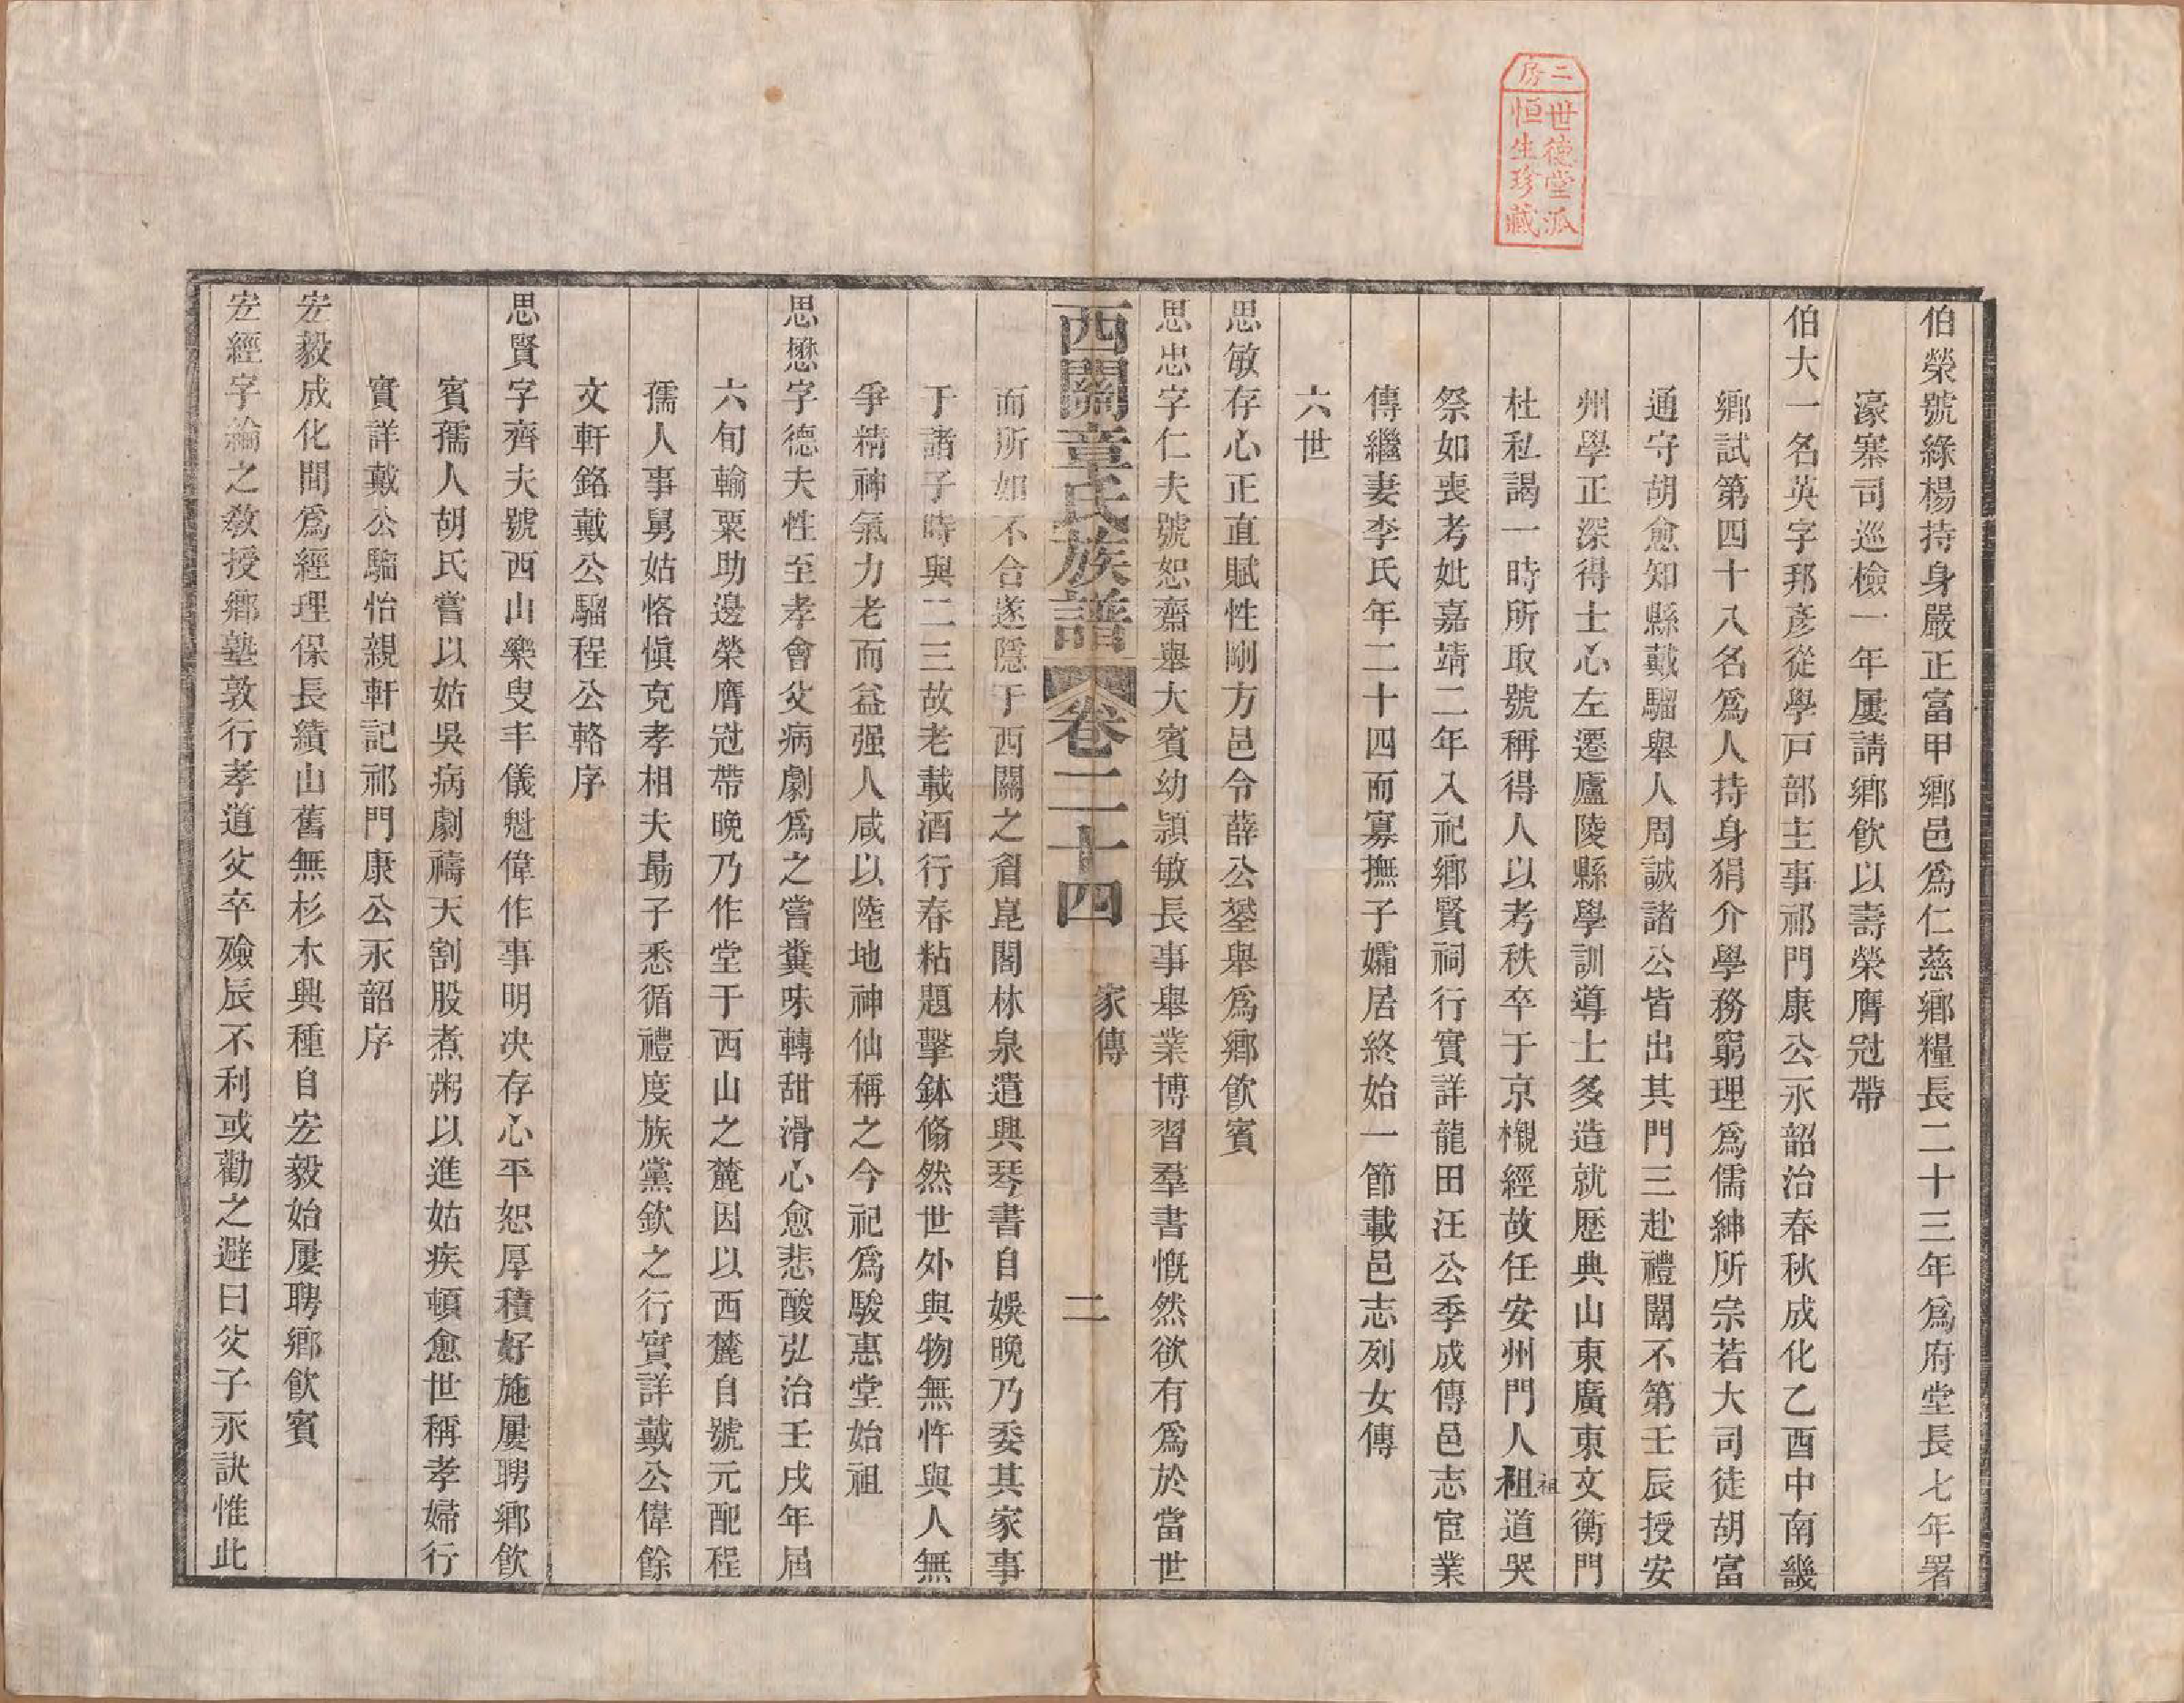 二房
世德堂派
恒生珍藏
伯榮號綠楊持身嚴正富甲鄉邑爲仁慈鄉糧長二十三年爲府堂長七年署
濠寨司巡檢一年屢請鄉飮以壽榮膺冠帶
伯大一名英字邦彥從學戸部主事祁門康公永韶治春秋成化乙酉中南畿
鄉試第四十八名爲人持身狷介學務窮理爲儒紳所宗若大司徒胡富
通守胡愈知縣戴騮舉人周誠諸公皆出其門三赴禮闈不第壬辰授安
州學正深得士心左遷廬陵縣學訓導士多造就歷典山東廣東文衡門
杜私謁一時所取號稱得人以考秩卒于京櫬經故任安州門人租祖道哭
祭如喪考妣嘉靖二年入祀鄉賢祠行實詳龍田汪公季成傳邑志宦業
傳繼妻李氏年二十四而寡撫子孀居終始一節載邑志列女傳
六世
思敏存心正直賦性剛方邑令薛公鋆舉爲鄉飮賓
思忠字仁夫號恕齋舉大賓幼頴敏長事舉業博習羣書慨然欲有爲於當世
西關章氏族譜 卷二十四 家傳 二
而所如不合遂隱于西關之眉崑閣林泉遣興琴書自娛晩乃委其家事
于諸子時與二三故老載酒行春粘題擊鉢翛然世外與物無忤與人無
爭精神氣力老而益强人咸以陸地神仙稱之今祀爲駿惠堂始祖
思懋字德夫性至孝會父病劇爲之嘗糞味轉甜滑心愈悲酸弘治壬戌年屆
六旬輸粟助邊榮膺冠帶晩乃作堂于西山之麓因以西麓自號元配程
孺人事舅姑恪愼克孝相夫勗子悉循禮度族黨欽之行實詳戴公偉餘
文軒銘戴公騮程公輅序
思賢字齊夫號西山樂叟丰儀魁偉作事明決存心平恕厚積好施屢聘鄉飮
賓孺人胡氏嘗以姑吳病劇禱天割股煮粥以進姑疾頓愈世稱孝婦行
實詳戴公騮怡親軒記祁門康公永韶序
宏毅成化間爲經理保長績山舊無杉木興種自宏毅始屢聘鄉飮賓
宏經字綸之敎授鄉塾敦行孝道父卒殮辰不利或勸之避曰父子永訣惟此